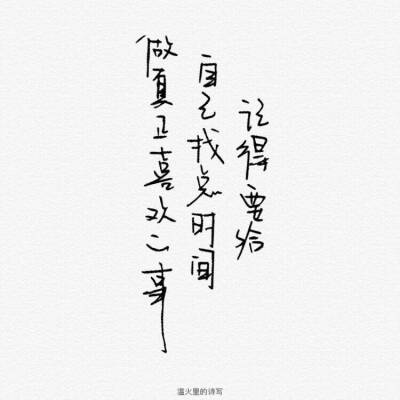 记得要给
自己找点时间
做真正喜欢的事
温火里的诗写